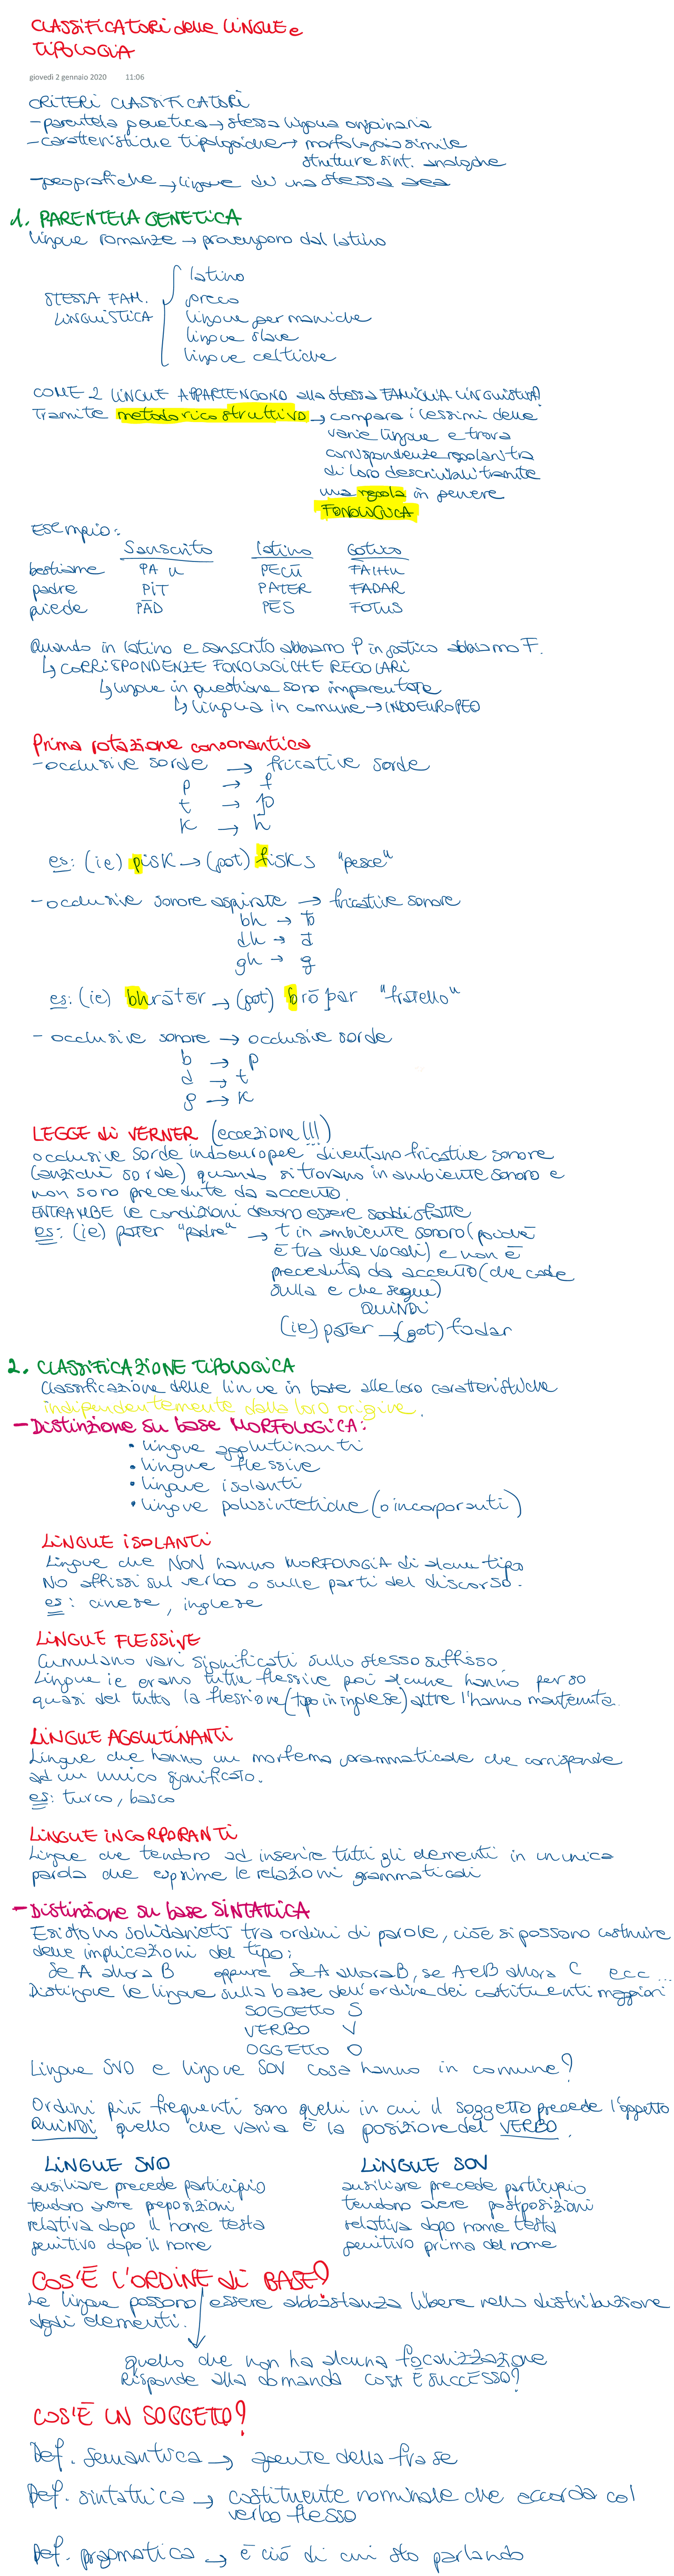 CLASSIFICATORI delle LINGUE e
TIPOLOGIA
giovedì 2 gennaio 2020 11:06
CRITERI CLASSIFICATORI
- parentela genetica → stessa lingua originaria
- caratteristiche tipologiche → morfologia simile
strutture sint. analoghe
- geografiche → lingue di una stessa area
1. PARENTELA GENETICA
lingue romanze → provengono dal latino
latino
STESSA FAM. greco
LINGUISTICA lingue germaniche
lingue slave
lingue celtiche
COME 2 LINGUE APPARTENGONO alla stessa FAMIGLIA LINGUISTICA?
Tramite metodo ricostruttivo → compara i lessimi delle
varie lingue e trova
corrispondenze regolari tra
di loro descrivibili tramite
una regola in genere
FONOLOGICA
Esempio:
Sanscrito latino Gotico
bestiame PA U PECŪ FAIHU
padre PIT PATER FADAR
piede PĀD PĒS FOTUS
Quando in latino e sanscrito abbiamo P in gotico abbiamo F.
↳ CORRISPONDENZE FONOLOGICHE REGOLARI
↳ lingue in questione sono imparentate
↳ lingua in comune → INDOEUROPEO
Prima rotazione consonantica
- occlusive sorde → fricative sorde
p → f
t → þ
k → h
es: (ie) pisk → (got) fisks "pesce"
- occlusive sonore aspirate → fricative sonore
bh → ƀ
dh → đ
gh → g
es: (ie) bhrāter → (got) brōþar "fratello"
- occlusive sonore → occlusive sorde
b → p
d → t
g → k
LEGGE di VERNER (eccezione!!!)
occlusive sorde indoeuropee diventano fricative sonore
(anziché sorde) quando si trovano in ambiente sonoro e
non sono precedute da accento.
ENTRAMBE le condizioni devono essere soddisfatte
es: (ie) pater "padre" → t in ambiente sonoro (poiché
è tra due vocali) e non è
preceduta da accento (che cade
sulla e che segue)
QUINDI
(ie) pater → (got) fadar
2. CLASSIFICAZIONE TIPOLOGICA
Classificazione delle lingue in base alle loro caratteristiche
indipendentemente dalla loro origine.
- Distinzione su base MORFOLOGICA:
• lingue agglutinanti
• lingue flessive
• lingue isolanti
• lingue polisintetiche (o incorporanti)
LINGUE ISOLANTI
Lingue che NON hanno MORFOLOGIA di alcun tipo
No affissi sul verbo o sulle parti del discorso.
es: cinese, inglese
LINGUE FLESSIVE
Cumulano vari significati sullo stesso suffisso.
Lingue ie erano tutte flessive poi alcune hanno perso
quasi del tutto la flessione (tipo in inglese) altre l'hanno mantenuta.
LINGUE AGGLUTINANTI
Lingue che hanno un morfema grammaticale che corrisponde
ad un unico significato.
es: turco, basco
LINGUE INCORPORANTI
Lingue che tendono ad inserire tutti gli elementi in un'unica
parola che esprime le relazioni grammaticali
- Distinzione su base SINTATTICA
Esistono solidarietà tra ordini di parole, cioè si possono costruire
delle implicazioni del tipo:
Se A allora B oppure Se A allora B, se A e B allora C ecc...
Distingue le lingue sulla base dell'ordine dei costituenti maggiori
SOGGETTO S
VERBO V
OGGETTO O
Lingue SVO e lingue SOV cosa hanno in comune?
Ordini più frequenti sono quelli in cui il soggetto precede l'oggetto
QUINDI quello che varia è la posizione del VERBO.
LINGUE SVO LINGUE SOV
ausiliare precede participio ausiliare precede participio
tendono avere preposizioni tendono avere postposizioni
relativa dopo il nome testa relativa dopo nome testa
genitivo dopo il nome genitivo prima del nome
COS'È L'ORDINE di BASE?
Le lingue possono essere abbastanza libere nella distribuzione
degli elementi.
quello che non ha alcuna focalizzazione
Risponde alla domanda COSA È SUCCESSO?
COS'È UN SOGGETTO?
Def. semantica → agente della frase
Def. sintattica → costituente nominale che accorda col
verbo flesso
Def. pragmatica → è ciò di cui sto parlando